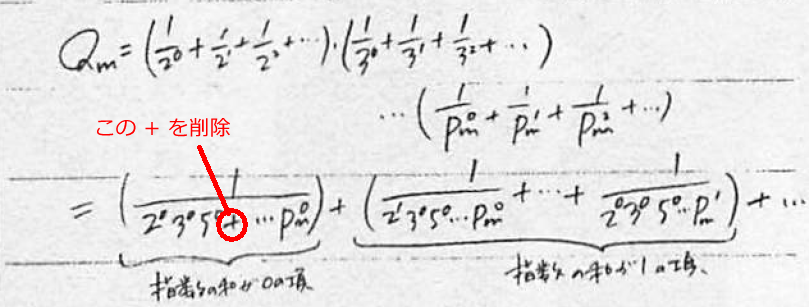 Qm = (1/2⁰ + 1/2¹ + 1/2² + ⋯)・(1/3⁰ + 1/3¹ + 1/3² + ⋯)
⋯ (1/Pm⁰ + 1/Pm¹ + 1/Pm² + ⋯)
この + を削除
= (1/2⁰3⁰5⁰+⋯Pm⁰) + (1/2¹3⁰5⁰⋯Pm⁰ + ⋯ + 1/2⁰3⁰5⁰⋯Pm¹) + ⋯
指数の和が0の項 指数の和が1の項、